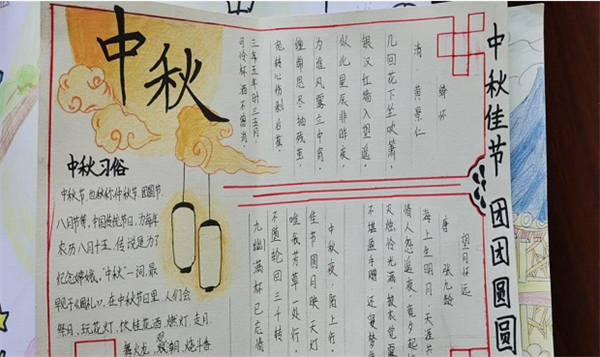 中秋
中秋佳节 团团圆圆
绮怀
清·黄景仁
几回花下坐吹箫,
银汉红墙入望遥。
似此星辰非昨夜,
为谁风露立中宵。
思尽抽残茧,
宛转心伤剥后蕉。
三年五年时三五月,
可怜杯酒不曾消。
中秋习俗
中秋节,也称仲秋节、团圆节、
八月节等,中国传统节日,为每年
农历八月十五.传说是为了
纪念嫦娥."中秋"一词,最
早见于《周礼》.在中秋节日里,人们会
祭月、玩花灯、饮桂花酒、燃灯、走月、
舞火龙、观朝、烧斗香
望月怀远
唐 张九龄
海上生明月,天涯
情人怨遥夜,竟夕起
灭烛怜光满,披衣觉露
不堪盈手赠,还寝梦
中秋夜,陌上行,
佳节圆月映天灯
唯我芳草一处行,
不堕轮回三千转
九幽满杯已在